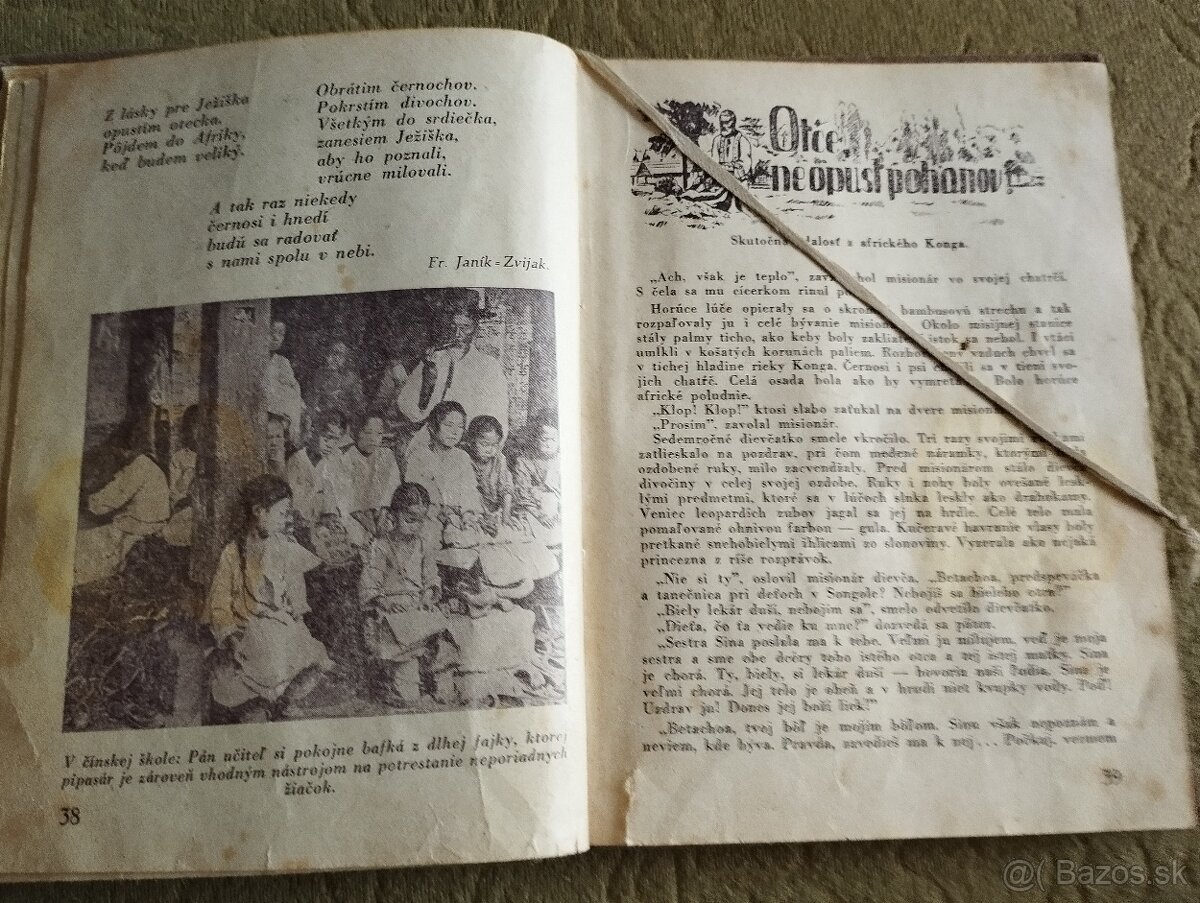 Z lásky pre Ježiška
opustím otecka.
Pôjdem do Afriky,
keď budem veliký.
Obrátim černochov.
Pokrstím divochov.
Všetkým do srdiečka,
zanesiem Ježiška,
aby ho poznali,
vrúcne milovali.
A tak raz niekedy
černosi i hnedí
budú sa radovať
s nami spolu v nebi.
Fr. Janík=Zvijak.
V čínskej škole: Pán učiteľ si pokojne bafká z dlhej fajky, ktorej
pipasár je zároveň vhodným nástrojom na potrestanie neporiadnych
žiačok.
38
Otče
neopusť pohanov!
Skutočná z afrického Konga.
„Ach, však je teplo”, misionár vo svojej chatrči.
S čela sa mu cícerkom rinul
Horúce lúče opieraly sa o bambusovú strechu a tak
rozpaľovaly ju i celé bývanie Okolo misijnej stanice
stály palmy ticho, ako keby boly sa nehol. I vtáci
umĺkli v košatých korunách paliem. vzduch chvel sa
v tichej hladine rieky Konga. Černosi i psi sa v tieni svo-
jich chatŕč. Celá osada bola ako by Bolo horúce
africké poludnie.
„Klop! Klop!” ktosi slabo zaťukal na dvere
„Prosím”, zavolal misionár.
Sedemročné dievčatko smele vkročilo. Tri razy svojimi
zatlieskalo na pozdrav, pri čom medené náramky, ktorými
ozdobené ruky, milo zacvendžaly. Pred misionárom stálo
divočiny v celej svojej ozdobe. Ruky i nohy boly ovešané lesk-
lými predmetmi, ktoré sa v lúčoch slnka leskly ako drahokamy.
Veniec leopardích zubov jagal sa jej na hrdle. Celé telo mala
pomaľované ohnivou farbou — gula. Kučeravé havranie vlasy boly
pretkané snehobielymi ihlicami zo slonoviny. Vyzerala ako nejaká
princezna z ríše rozprávok.
„Nie si ty”, oslovil misionár dievča, „Betachoa, predspeváčka
a tanečnica pri deťoch v Songole? Nebojíš sa bieleho otca?”
„Biely lekár duší, nebojím sa”, smelo odvetilo dievčatko.
„Dieťa, čo ťa vedie ku mne?” dozvedá sa páter.
„Sestra Sina poslala ma k tebe. Veľmi ju milujem, veď je moja
sestra a sme obe dcéry toho istého otca a tej istej matky. Sina
je chorá. Ty, biely, si lekár duší — hovoria naši ľudia. Sina je
veľmi chorá. Jej telo je oheň a v hrudi niet kvapky vody. Poď!
Uzdrav ju! Dones jej boží liek!”
„Betachoa, tvoj bôľ je mojím bôľom. Sinu však nepoznám a
neviem, kde býva. Pravda, zavedieš ma k nej... Počkaj, vezmem
39
@( Bazos.sk